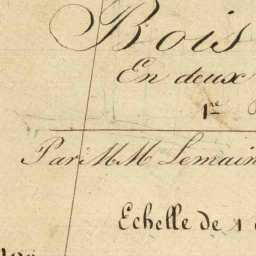 Bois
En deux
1re
Par MM Lemain
Echelle de 1